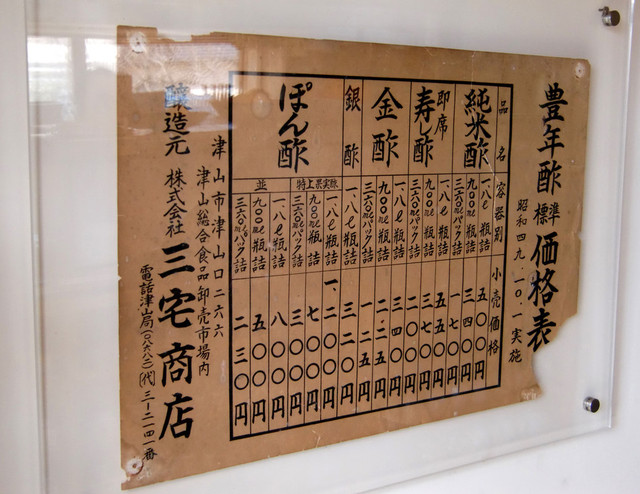 豊年酢 標準 価格表
昭和四九.一〇.一実施
品名 容器別 小売価格
純米酢 一.八ℓ瓶詰 五〇〇円
九〇〇mℓ瓶詰 三四〇円
三六〇mℓパック詰 一七〇円
即席寿し酢 一.八ℓ瓶詰 五五〇円
九〇〇mℓ瓶詰 三七〇円
三六〇mℓパック詰 二〇〇円
金酢 一.八ℓ瓶詰 三四〇円
九〇〇mℓ瓶詰 二二五円
三六〇mℓパック詰 一二五円
銀酢 一.八ℓ瓶詰 三二〇円
ぽん酢 特上果実酢 一.八ℓ瓶詰 一、二〇〇円
九〇〇mℓ瓶詰 七〇〇円
三六〇mℓパック詰 三〇〇円
並 一.八ℓ瓶詰 八〇〇円
九〇〇mℓ瓶詰 五〇〇円
三六〇mℓパック詰 二三〇円
津山市津山口二六六
津山総合食品卸売市場内
醸造元 株式会社 三宅商店
電話津山局(〇八六八二)(代)三ー二一四一番